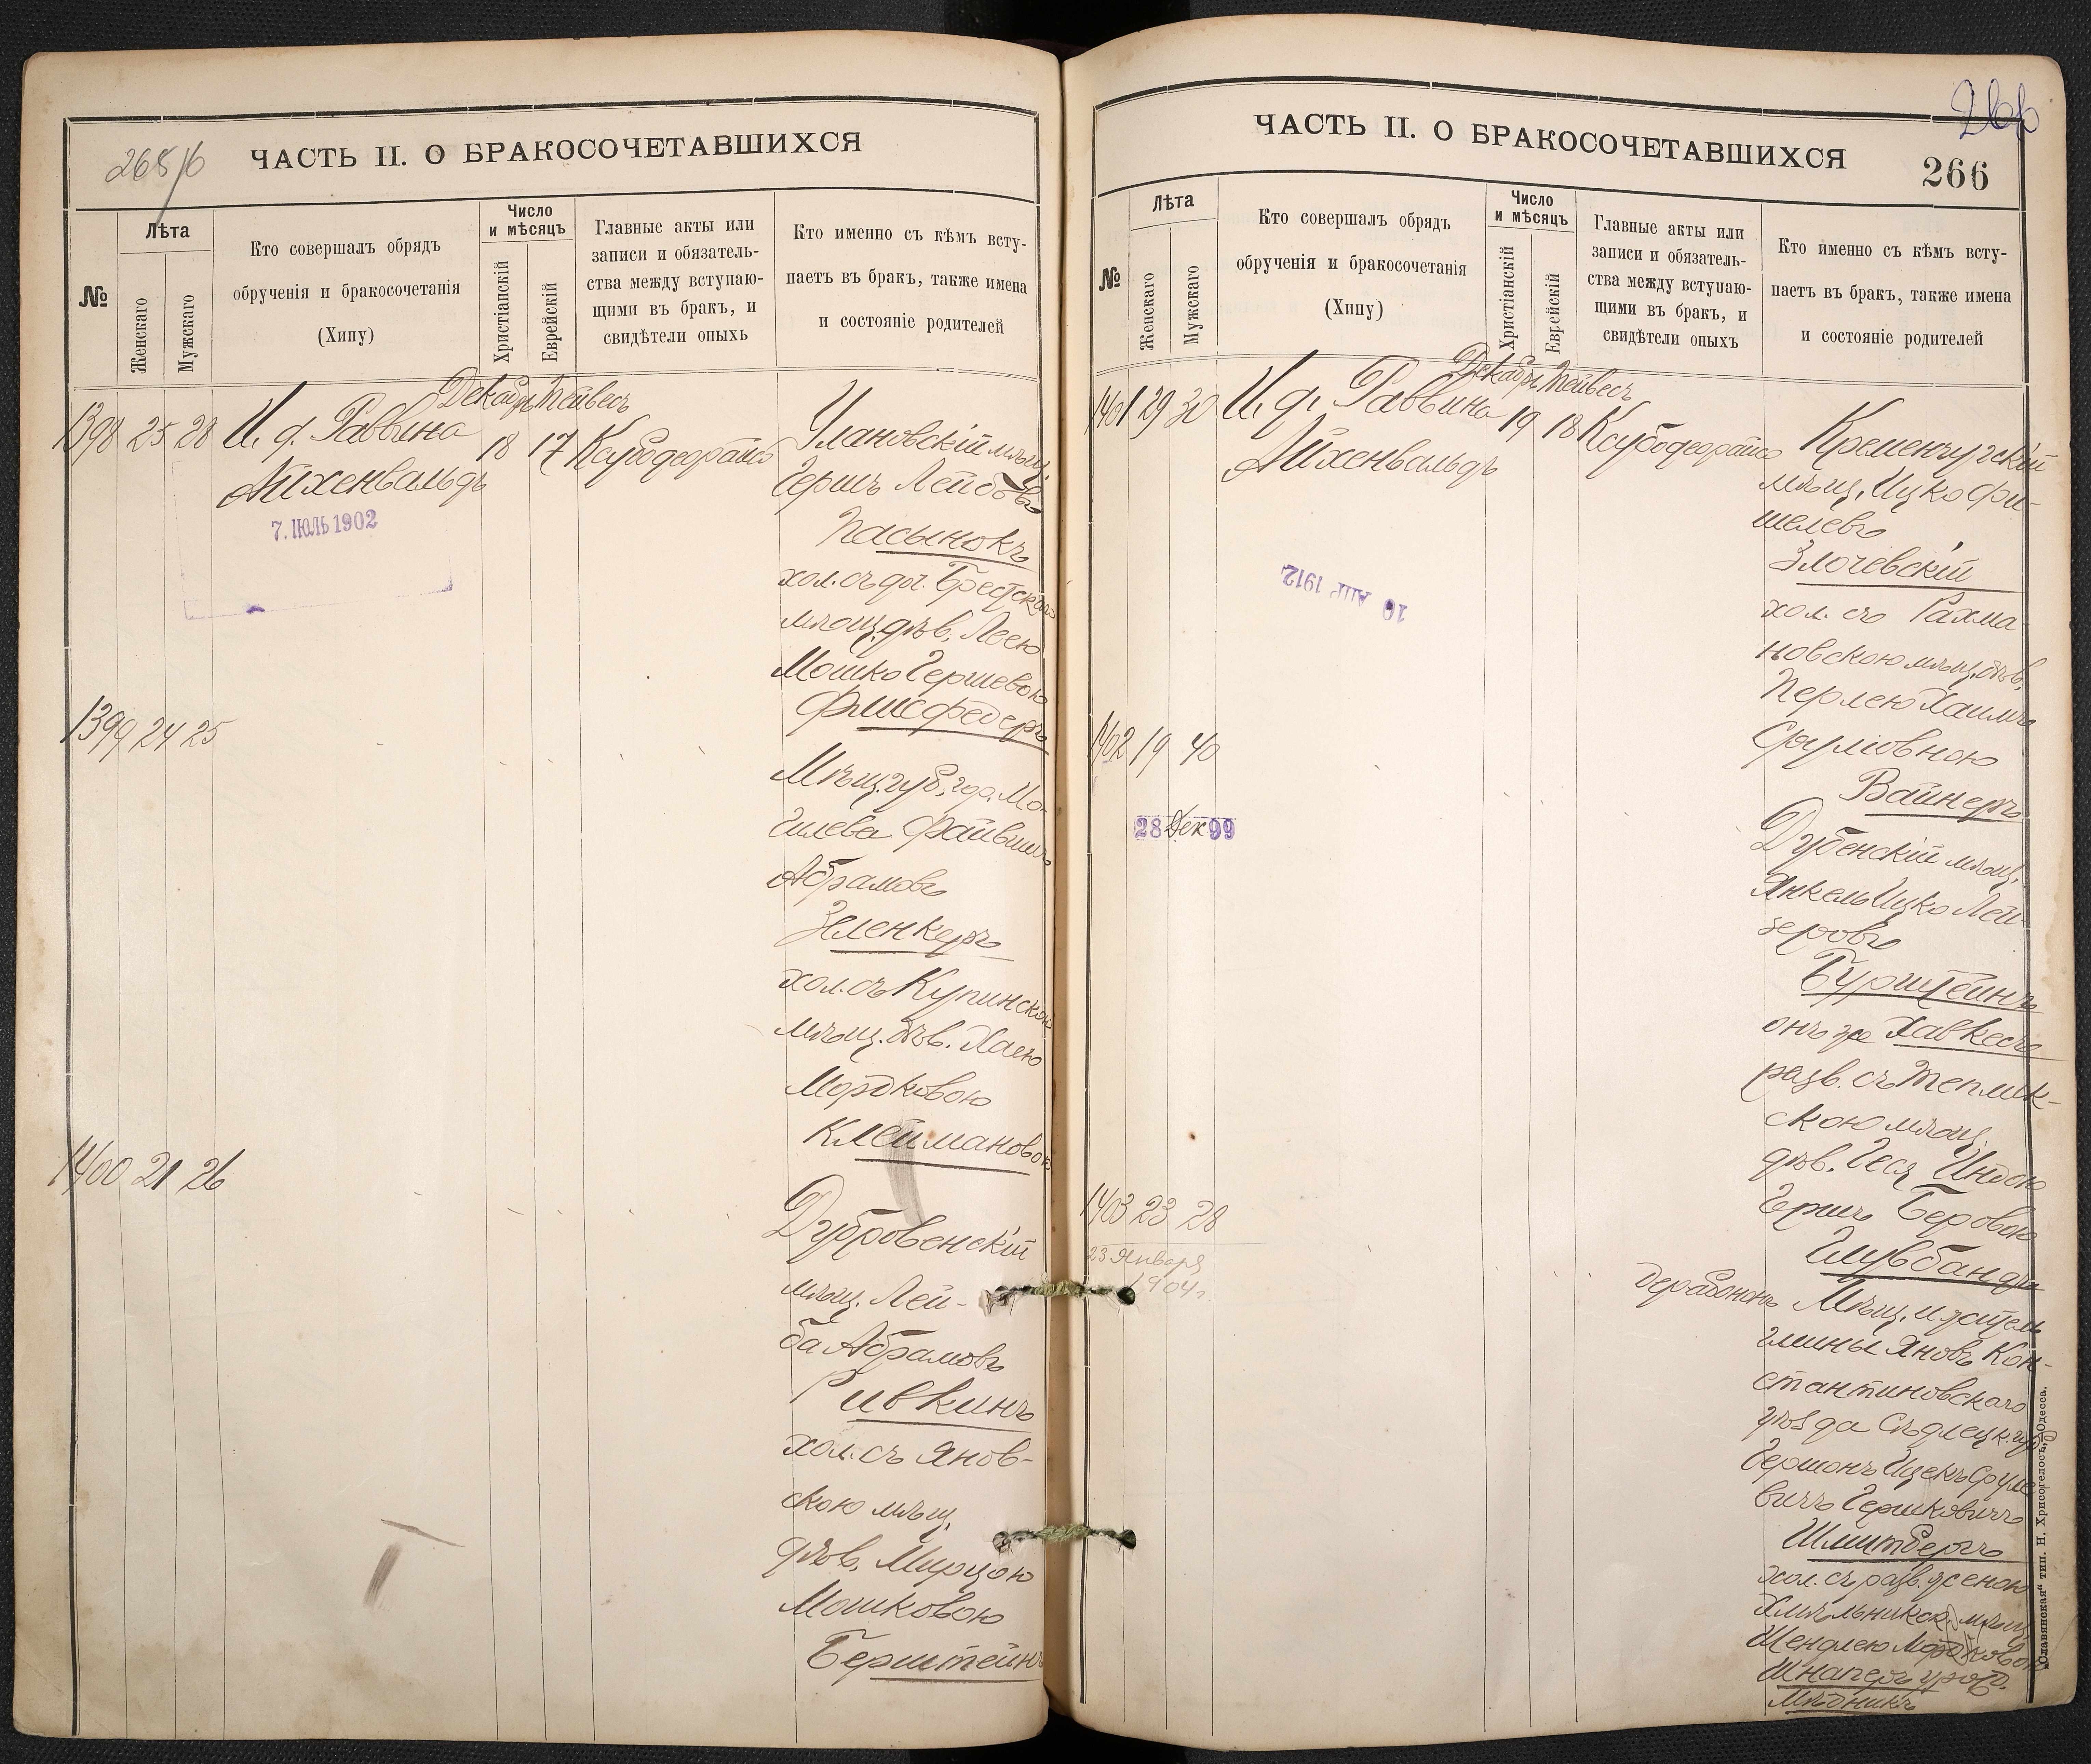 265/б
ЧАСТЬ II. О БРАКОСОЧЕТАВШИХСЯ
№
Лѣта
Женскаго
Мужскаго
Кто совершалъ обрядъ
обрученія и бракосочетанія
(Хипу)
Число
и мѣсяцъ
Христіанскій
Еврейскій
Главные акты или
записи и обязатель-
ства между вступаю-
щими въ бракъ, и
свидѣтели оныхъ
Кто именно съ кѣмъ всту-
паетъ въ бракъ, также имена
и состояніе родителей
Декабрь Тейвесъ
1398 25 28 И. д. Раввина 18 17
Айхенвальдъ
7. ІЮЛЬ 1902
Улановскій мѣщ.
Гершъ Лейбовъ
Пасынокъ
хол. съ дч. Брестскаго
мѣщ. дѣв. Леею
Мошко Гершевою
Флисфедеръ
1399 24 25
Мѣщ. губ. гор. Мо-
гилева Файвишъ
Абрамовъ
Зленкеръ
хол. съ Купинскою
мѣщ. дѣв. Хаею
Мордковою
Клеймановою
1400 21 26
Дубровенскій
мѣщ. Лей-
ба Абрамовъ
Ривкинъ
хол. съ Янов-
скою мѣщ.
дѣв. Мирцою
Мошковою
Берштейнъ
266
ЧАСТЬ II. О БРАКОСОЧЕТАВШИХСЯ
266
№
Лѣта
Женскаго
Мужскаго
Кто совершалъ обрядъ
обрученія и бракосочетанія
(Хипу)
Число
и мѣсяцъ
Христіанскій
Еврейскій
Главные акты или
записи и обязатель-
ства между вступаю-
щими въ бракъ, и
свидѣтели оныхъ
Кто именно съ кѣмъ всту-
паетъ въ бракъ, также имена
и состояніе родителей
Декабрь Тейвесъ
1401 29 30 И. д. Раввина 19 18
Айхенвальдъ
10 АПР 1912
Кременчугскій
мѣщ. Ицко Фи-
шелевъ
Злочевскій
хол. съ Рахма-
новскою мѣщ. дѣв.
Перлею Хаимъ
Срулиовною
Вайнеръ
1402 19 40
28 Дек 99
Дубенскій мѣщ.
Янкель Ицко Лей-
зеровъ
Бурштейнъ
онъ же Хавкесъ
разв. съ Теплик-
скою мѣщ.
дѣв. Геся Индою
Гершъ Беровою
1403 23 28
23 Января
1904 г.
Мѣщ. и житель
гмины Яновъ Кон-
стантиновскаго
уѣзда Сѣдлецк. губ.
Гершонъ Ицекъ Сруле-
вичъ Гершковичъ
Шмитбергъ
хол. съ разв. женою
Хмѣльникск. мѣщ.
Шендлею Мордковою
Шнаперъ урожд.
Мѣдникъ
„Славянская“ тип. Н. Хрисогелосъ, Одесса.